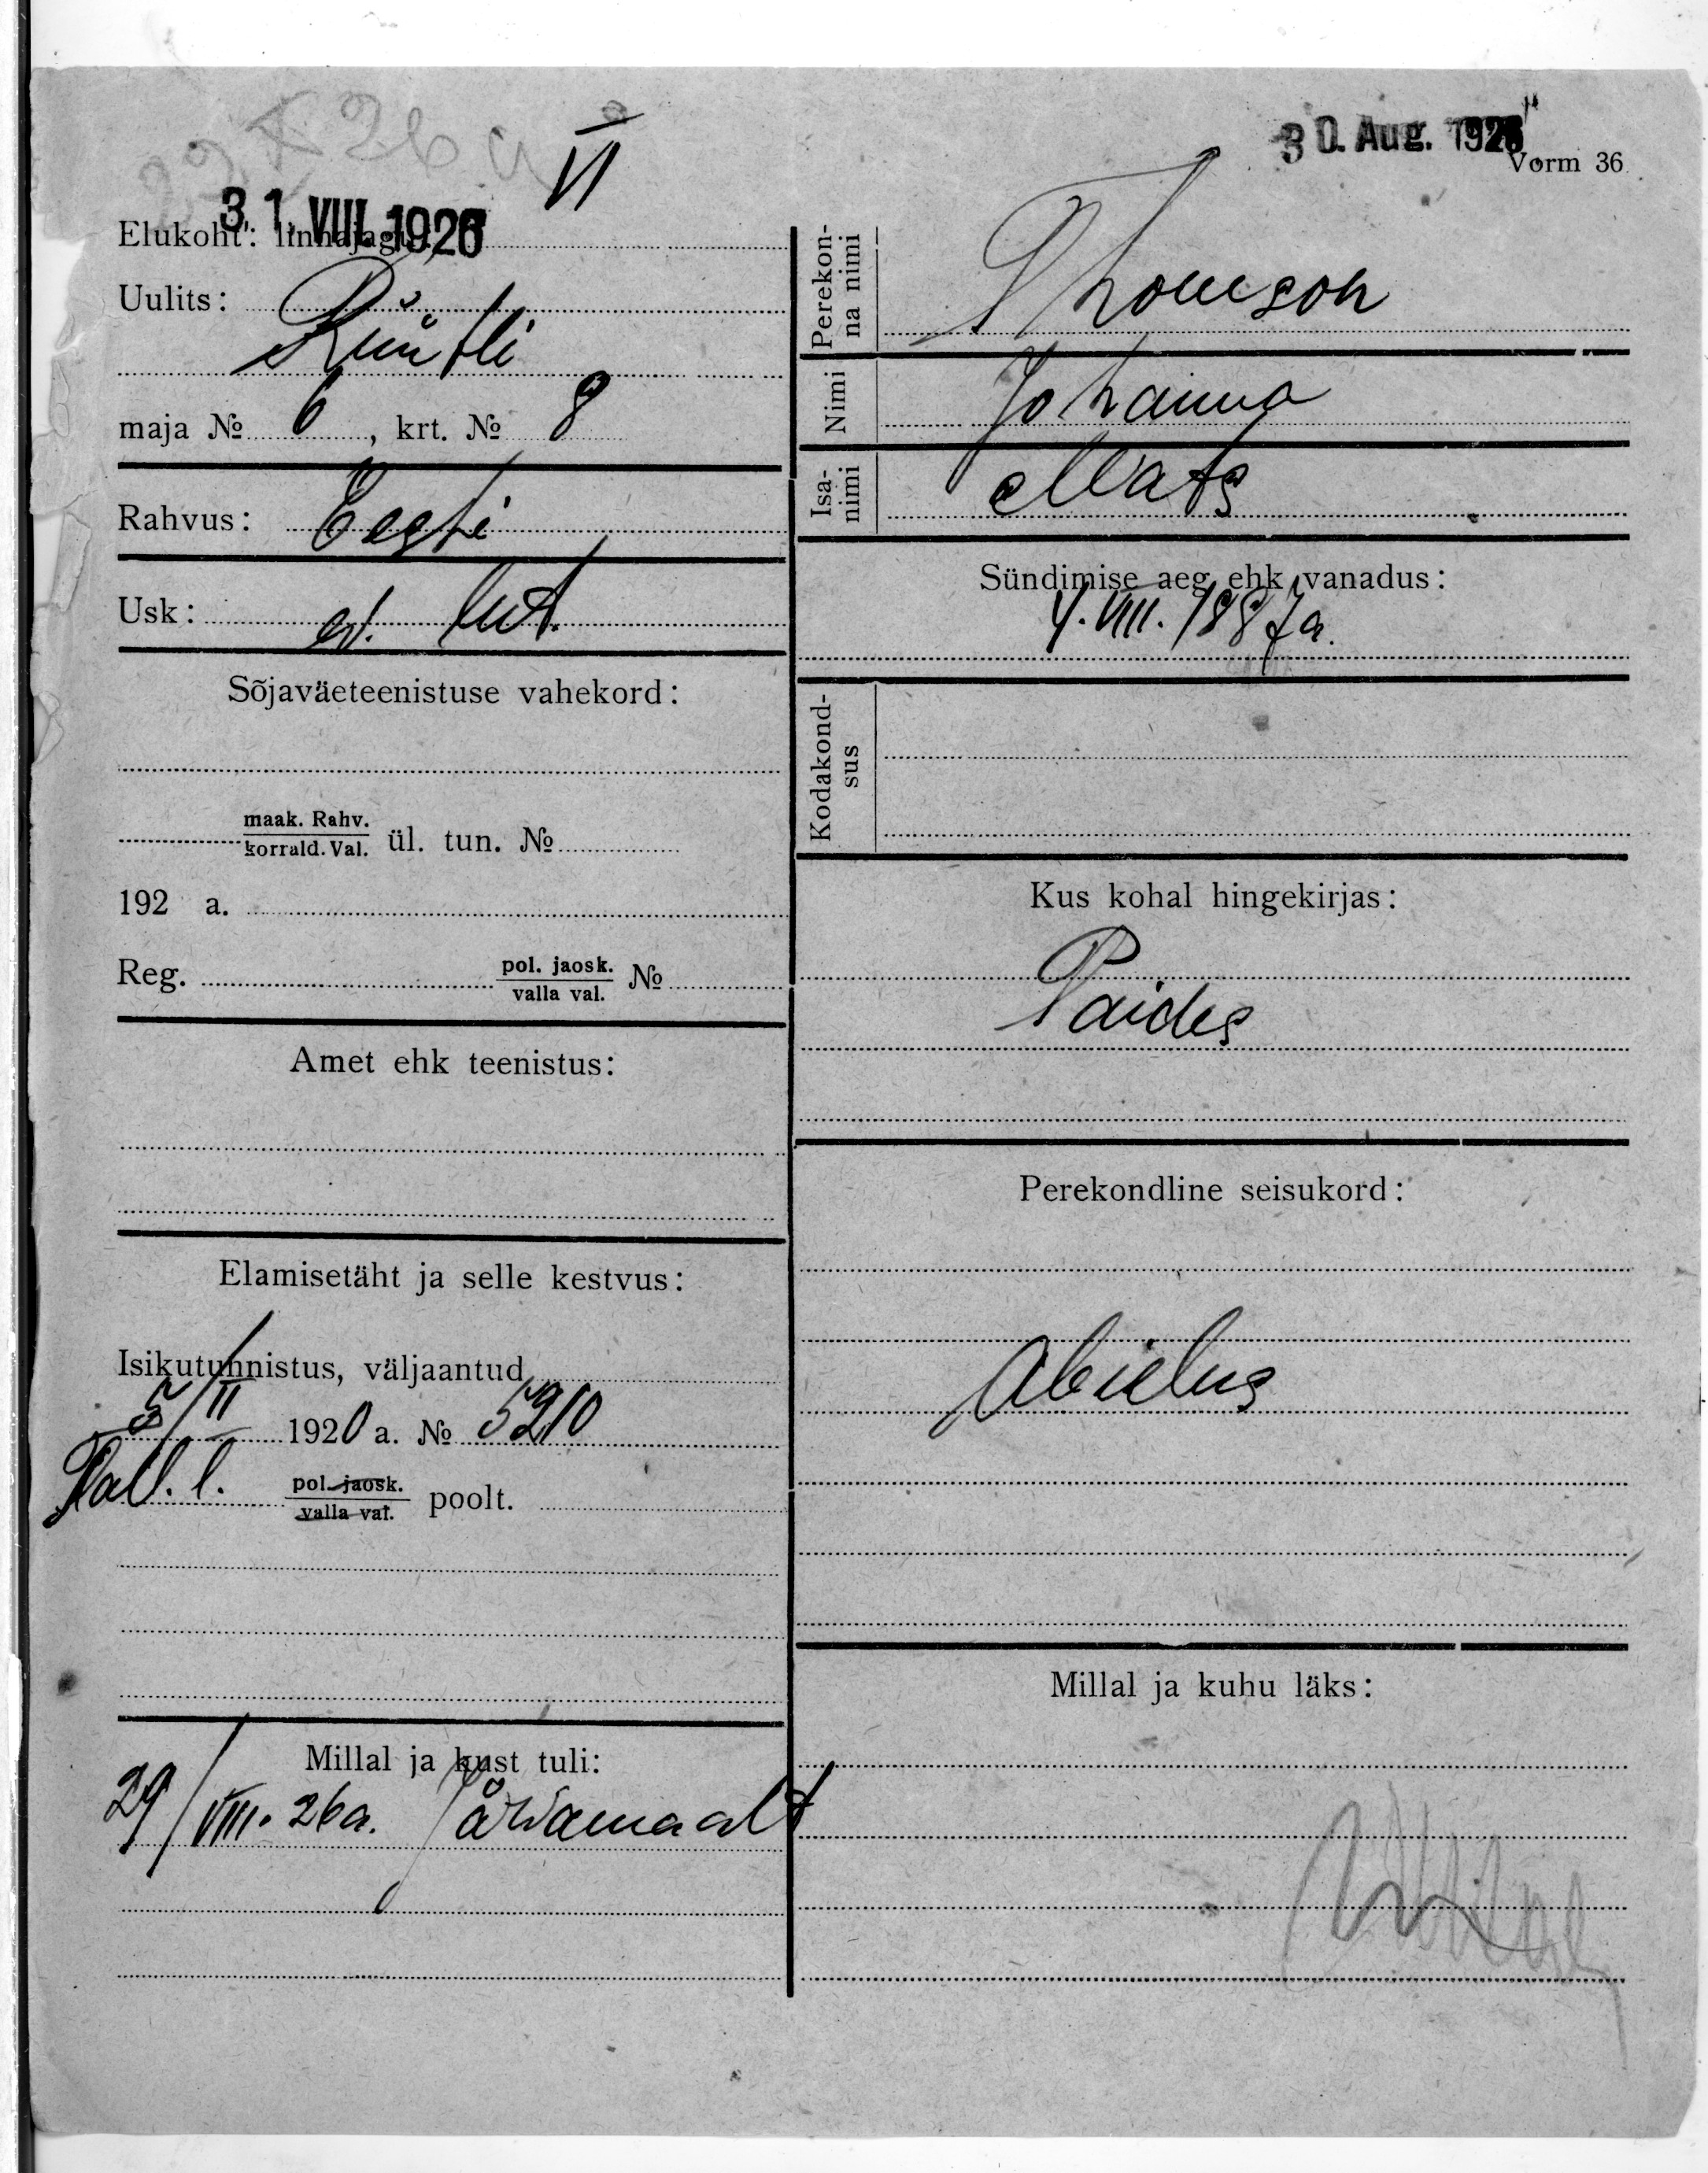 VI
31. VIII. 1926
Elukoht: linnajagu
Uulits:
Rüütli
maja № 6, krt. № 8
Rahvus: Eesti
Usk: ev. lut.
Sõjaväeteenistuse vahekord:
maak. Rahv.
korrald. Val. ül. tun. №
192 a.
Reg. pol. jaosk.
valla val. №
Amet ehk teenistus:
Elamisetäht ja selle kestvus:
Isikutunnistus, väljaantud
5/II 1920 a. № 5210
Tall. l. pol. jaosk.
valla val. poolt.
Millal ja kust tuli:
29/VIII. 26 a. Järvamaalt
30. Aug. 1926
Vorm 36
Perekon-
na nimi
Thomson
Nimi
Johanna
Isa-
nimi
Mats
Sündimise aeg ehk vanadus:
4. VIII. 1887 a.
Kodakond-
sus
Kus kohal hingekirjas:
Paides
Perekondline seisukord:
Abielus
Millal ja kuhu läks: